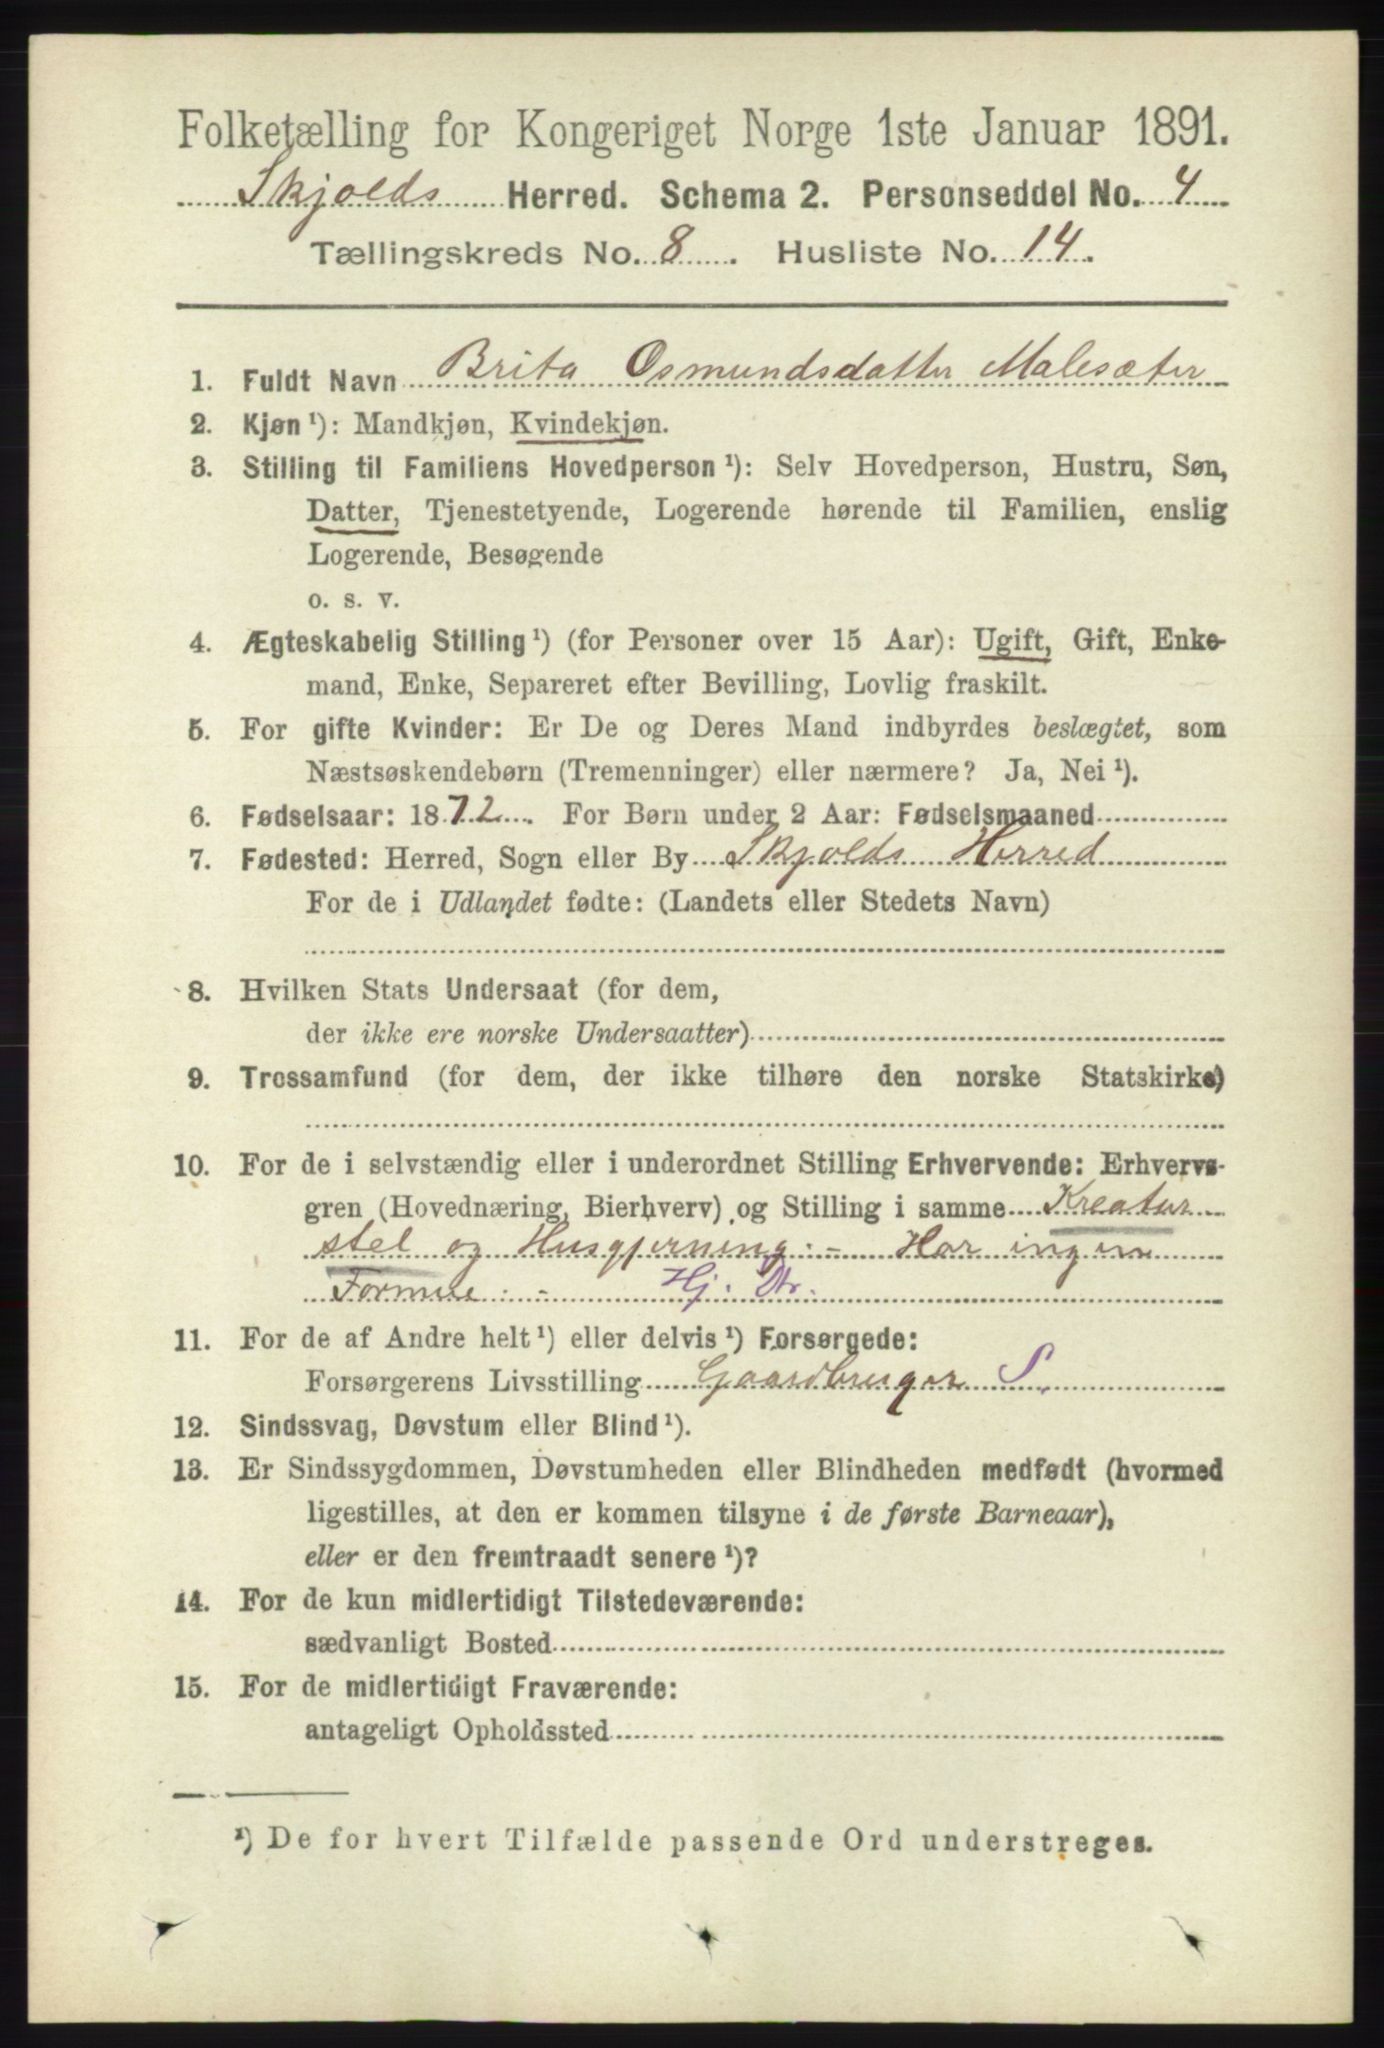 Folketælling for Kongeriget Norge 1ste Januar 1891.
Skjolds Herred. Schema 2. Personseddel No. 4
Tællingskreds No. 8. Husliste No. 14.
1. Fuldt Navn Brita Osmundsdatter Malesæter
2. Kjøn ¹): Mandkjøn, Kvindekjøn.
3. Stilling til Familiens Hovedperson ¹): Selv Hovedperson, Hustru, Søn,
Datter, Tjenestetyende, Logerende hørende til Familien, enslig
Logerende, Besøgende
o. s. v.
4. Ægteskabelig Stilling ¹) (for Personer over 15 Aar): Ugift, Gift, Enke-
mand, Enke, Separeret efter Bevilling, Lovlig fraskilt.
5. For gifte Kvinder: Er De og Deres Mand indbyrdes beslægtet, som
Næstsøskendebørn (Tremenninger) eller nærmere? Ja, Nei ¹).
6. Fødselsaar: 1872. For Børn under 2 Aar: Fødselsmaaned
7. Fødested: Herred, Sogn eller By Skjolds Herred
For de i Udlandet fødte: (Landets eller Stedets Navn)
8. Hvilken Stats Undersaat (for dem,
der ikke ere norske Undersaatter)
9. Trossamfund (for dem, der ikke tilhøre den norske Statskirke)
10. For de i selvstændig eller i underordnet Stilling Erhvervende: Erhvervs-
gren (Hovednæring, Bierhverv) og Stilling i samme Kreatur
stel og Husgjerning. - Har ingen
Formue. - Hj. Dtr.
11. For de af Andre helt ¹) eller delvis ¹) Forsørgede:
Forsørgerens Livsstilling Gaardbruger S.
12. Sindssvag, Døvstum eller Blind ¹).
13. Er Sindssygdommen, Døvstumheden eller Blindheden medfødt (hvormed
ligestilles, at den er kommen tilsyne i de første Barneaar),
eller er den fremtraadt senere ¹)?
14. For de kun midlertidigt Tilstedeværende:
sædvanligt Bosted
15. For de midlertidigt Fraværende:
antageligt Opholdssted
¹) De for hvert Tilfælde passende Ord understreges.